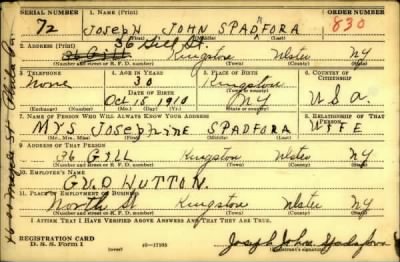 SERIAL NUMBER 1. NAME (Print) ORDER NUMBER
72 JOSEPH JOHN SPADAFORA 830
(First) (Middle) (Last)
2. ADDRESS (Print) 36 Gill St.
Kingston Ulster NY
(Number and street or R. F. D. number) (Town) (County) (State)
3. TELEPHONE 4. AGE IN YEARS 5. PLACE OF BIRTH 6. COUNTRY OF CITIZENSHIP
None 30 Kingston
DATE OF BIRTH (Town or county)
Oct 18 1910 NY USA
(Exchange) (Number) (Mo.) (Day) (Yr.) (State or country)
7. NAME OF PERSON WHO WILL ALWAYS KNOW YOUR ADDRESS 8. RELATIONSHIP OF THAT PERSON
MRS JOSEPHINE SPADFORA WIFE
(Mr., Mrs., Miss) (First) (Middle) (Last)
9. ADDRESS OF THAT PERSON
36 Gill Kingston Ulster NY
(Number and street or R. F. D. number) (Town) (County) (State)
10. EMPLOYER'S NAME
HUTTON
11. PLACE OF EMPLOYMENT OR BUSINESS
North St Kingston Ulster NY
(Number and street or R. F. D. number) (Town) (County) (State)
I AFFIRM THAT I HAVE VERIFIED ABOVE ANSWERS AND THAT THEY ARE TRUE.
REGISTRATION CARD
D. S. S. Form 1 (over) 16—17105 Joseph John Spadafora
(Registrant's signature)